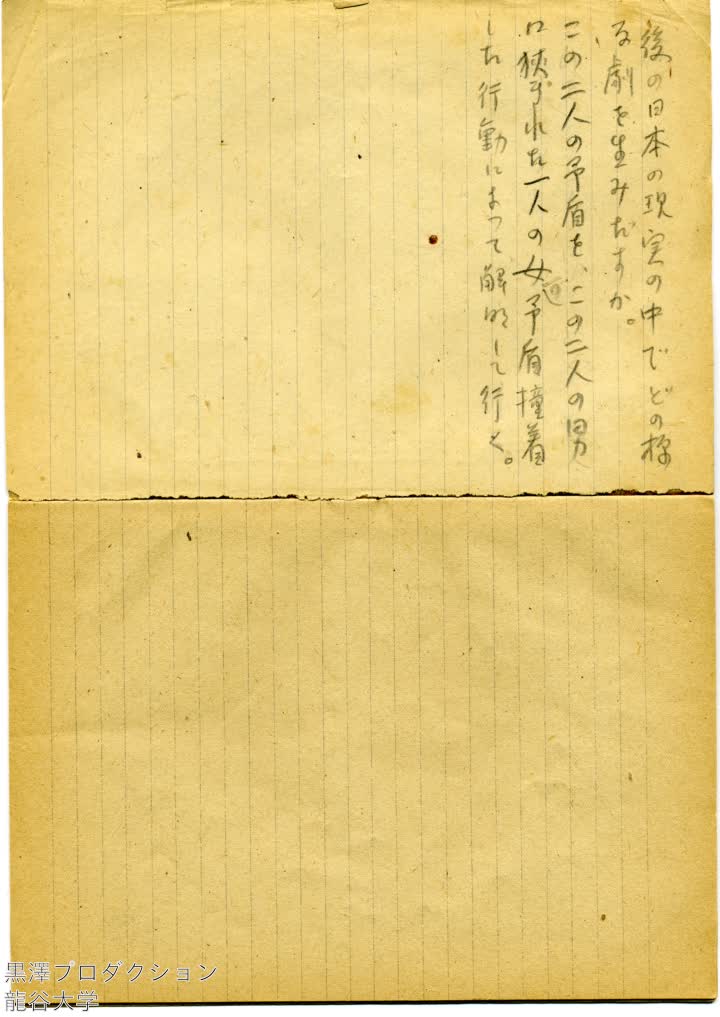 後の日本の現実の中でどの様
な劇を生みだすか。
この二人の矛盾を、この二人の男
に狭まれた一人の女の矛盾撞着
した行動によって解明して行く。
黒澤プロダクション
龍谷大学